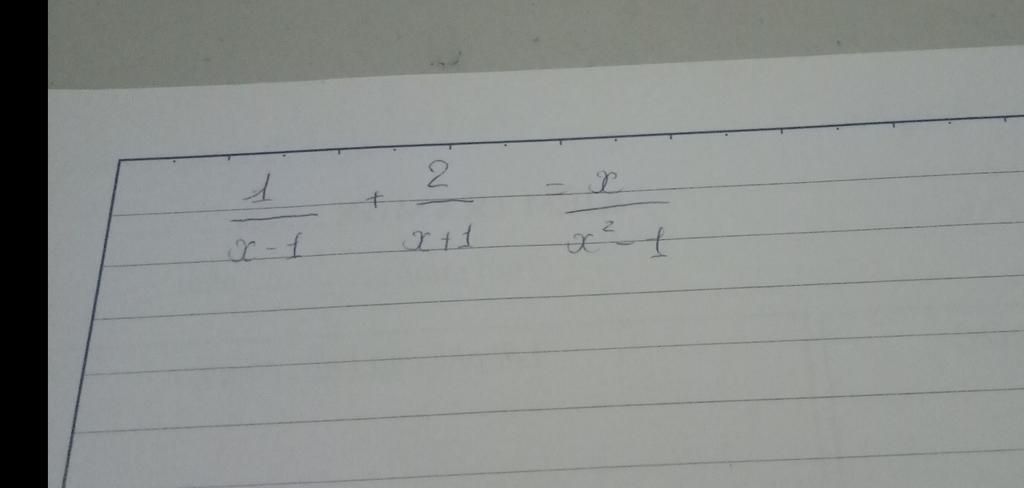 1/(x-1) + 2/(x+1) = x/(x²-1)